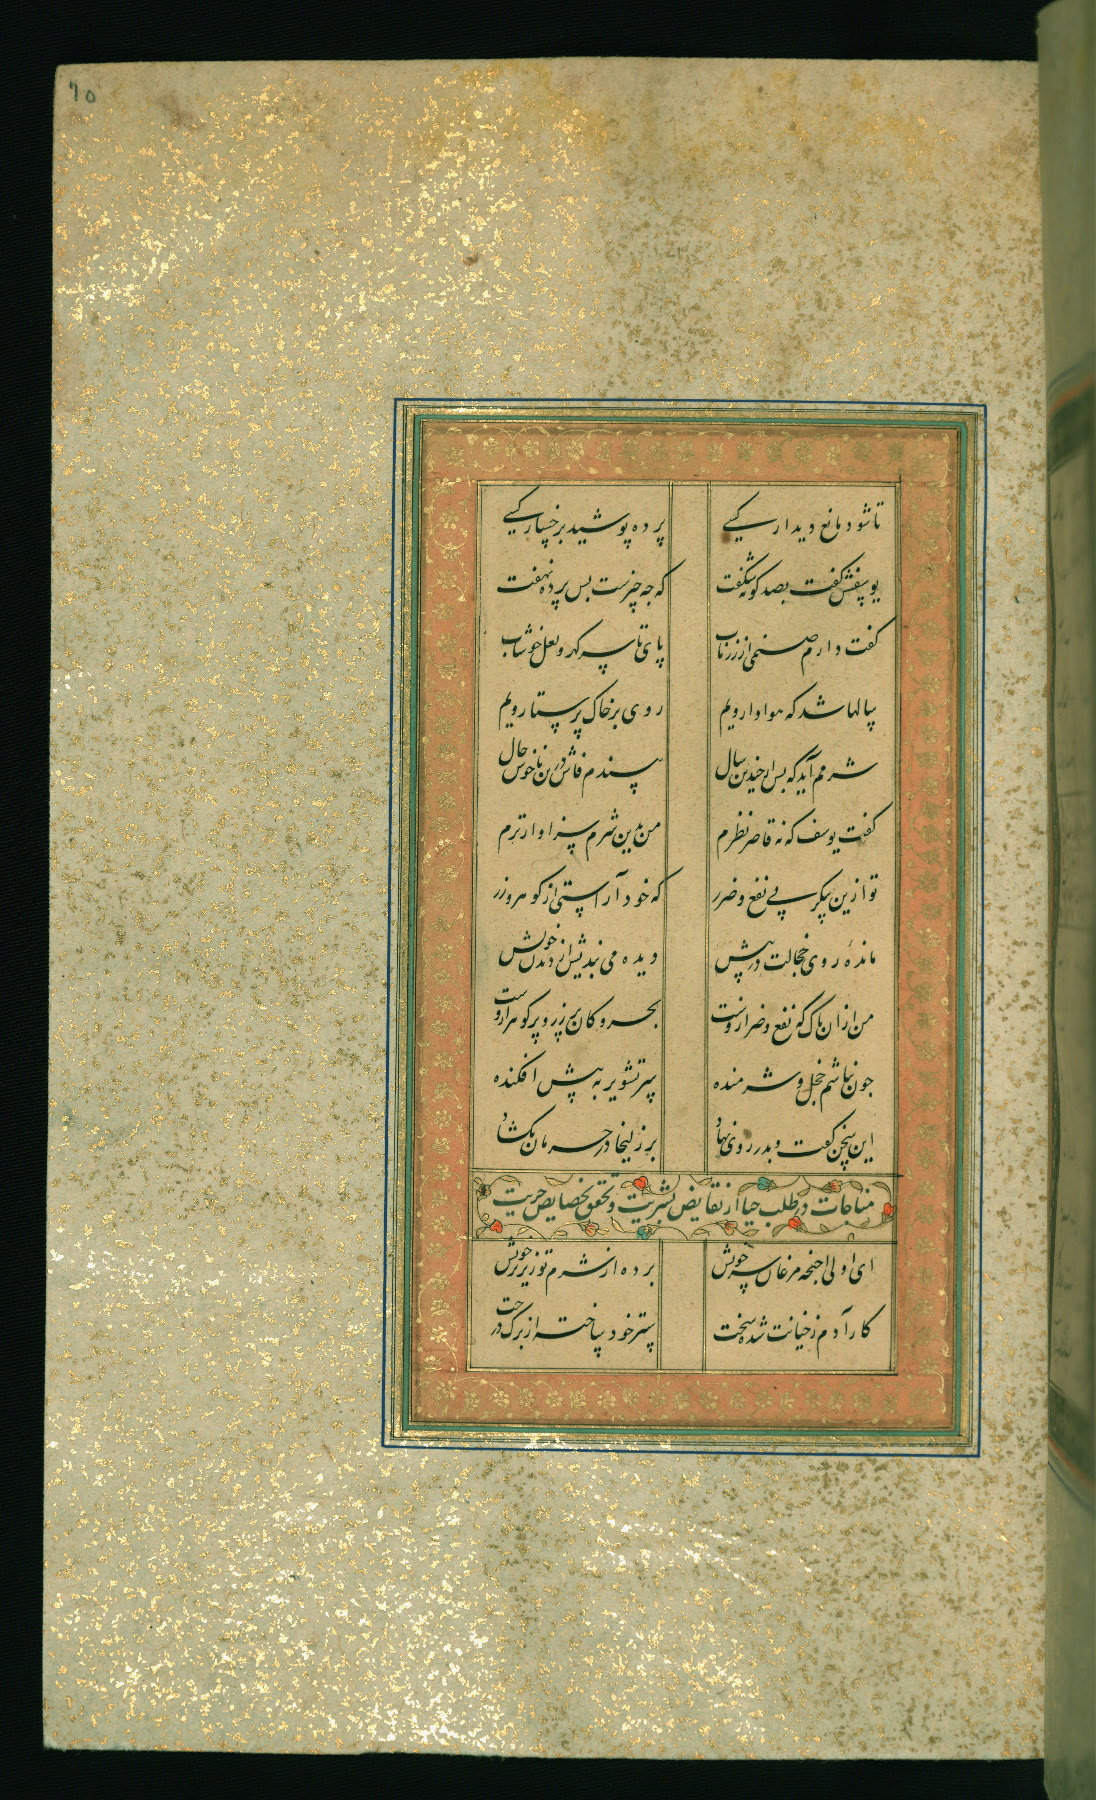 ٦٥
تا شود مانع دیدار کسی
پرده پوشید بر خسار کسی
یوسفش گفت بصد گونه شگفت
که جه چیزست بس پرده نهفت
گفت دارم صنمی از زر ناب
پای تا سر گهر و لعل خوشاب
سالها شد که هوادار ویم
روی بر خاک پرستار ویم
شرمم آید که بس از جندین سال
پسندم فاش درین ناخوش حال
گفت یوسف که نه قاصر نظرم
من بدین شرم سزاوارترم
تو ازین پیکر بی نفع و ضرر
که خود آراستی از گوهر و زر
مانده روی خجالت در پیش
دیده می ندیش از دیدن خویش
من ازان پاک که نفع و ضر ازوست
بحر و کان پر زر و پر گوهر ازوست
جون نباشم خجل و شرمنده
سر تشویر به پیش افکنده
این سخن گفت و بدر روی نهاد
بر زلیخا در حرمان بگشاد
مناجات در طلب حیا از نقایض بشریت و تحقق بخصایص حریت
ای اولی اجنحه مرغان سر خویش
برده از شرم تو زیر پر خویش
کار آدم ز خیانت شده سخت
ستر خود ساخته از برگ درخت